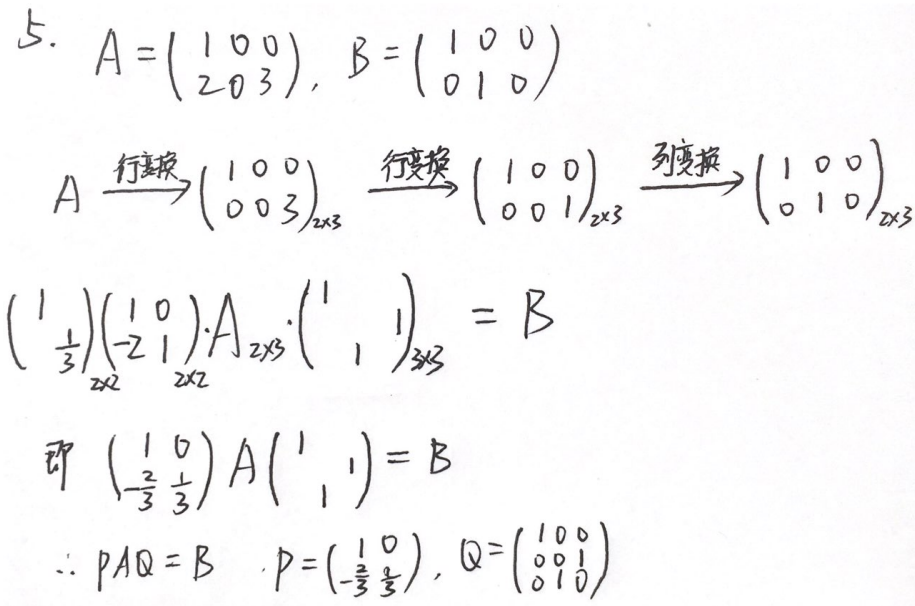 5. A = ( 1 0 0 ; 2 0 3 ), B = ( 1 0 0 ; 0 1 0 )
A 行变换→ ( 1 0 0 ; 0 0 3 )2×3 行变换→ ( 1 0 0 ; 0 0 1 )2×3 列变换→ ( 1 0 0 ; 0 1 0 )2×3
( 1 ; 1/3 )2×2 ( 1 0 ; -2 1 )2×2 · A2×3 · ( 1 ; 1 ; 1 )3×3 = B
即 ( 1 0 ; -2/3 1/3 ) A ( 1 ; 1 ; 1 ) = B
∴ PAQ = B . P = ( 1 0 ; -2/3 1/3 ), Q = ( 1 0 0 ; 0 0 1 ; 0 1 0 )